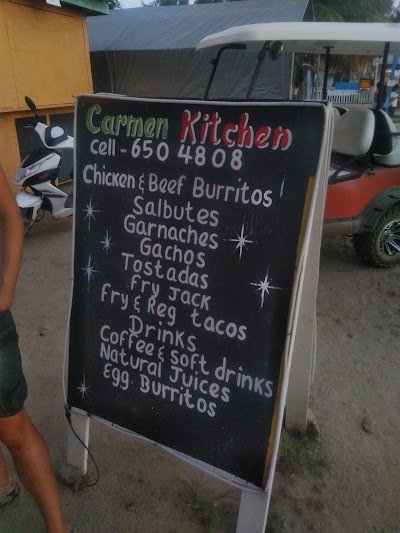 Carmen Kitchen
cell - 650 4808
Chicken & Beef Burritos
Salbutes
Garnaches
Gachos
Tostadas
Fry Jack
Fry & Reg tacos
Drinks
Coffee & soft drinks
Natural Juices
Egg Burritos